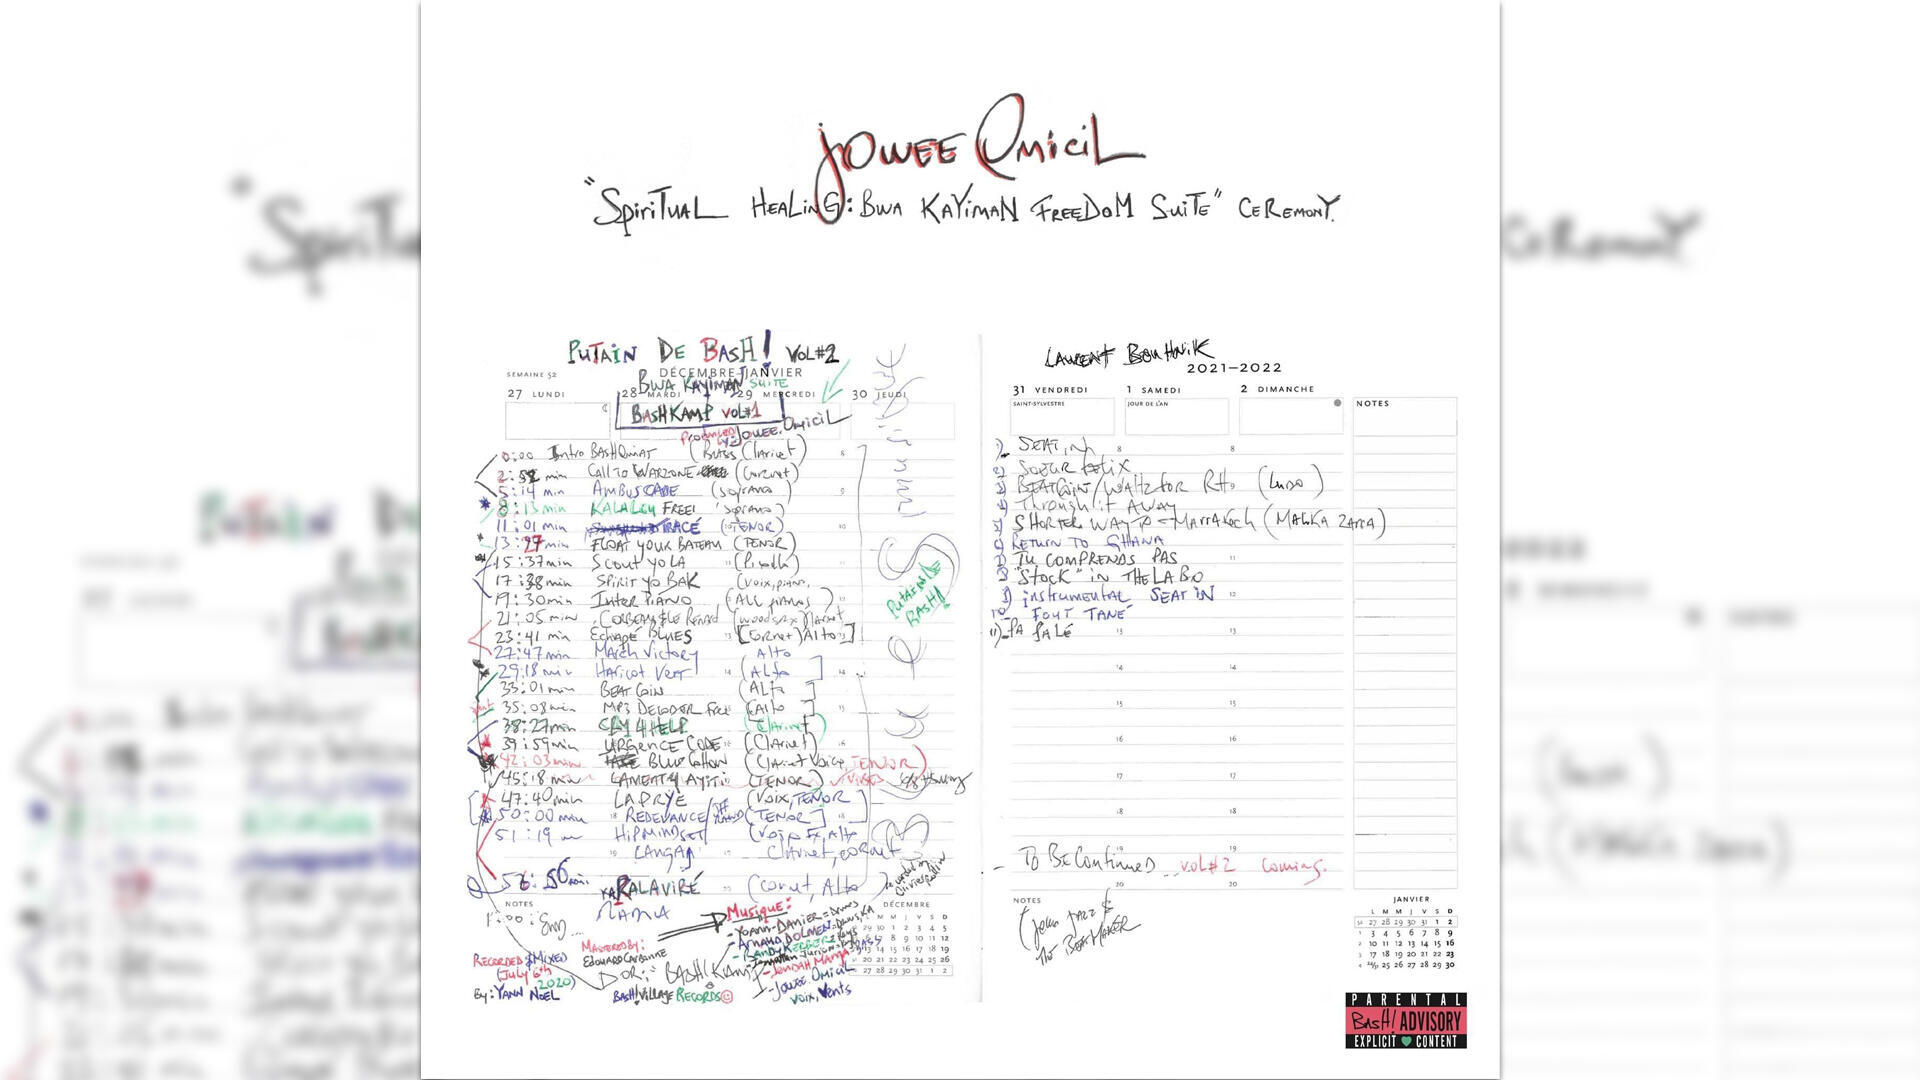 JOWEE OMICIL
"SPIRITUAL HEALING: BWA KAYIMAN FREEDOM SUITE" CEREMONY.
PUTAIN DE BASH! VOL#2
SEMAINE 52
DÉCEMBRE-JANVIER
BWA KAYIMAN SUITE
27 LUNDI
28 MARDI
29 MERCREDI
30 JEUDI
BASHKAMP VOL#1
Produced by: JOWEE OMICIL
0:00 Intro BASH (BASS Clarinet)
min Call to WARZONE (Cornet)
5:14 min AMBUSCADE (soprano)
8:13 min KALALOU FREE! (soprano)
11:01 min TRACE (TENOR)
min FLOAT YOUR BATEAU (TENOR)
15:37 min SCOUT YO LA
17:38 min SPIRIT YO BAK (voix, piano,
19:30 min INTER PIANO (ALL pianos)
21:05 min
23:41 min BLUES [Cornet, Alto]
27:47 min March Victory Alto
29:18 min Haricot Vert (Alto)
33:01 min BEAT COIN (Alto)
35:08 min MP3 DECODER Free (Alto)
38:27 min CRY 4 HELP (Clarinet)
39:59 min URGENCE CODE (Clarinet)
42:03 min BLUE COTTON (Clarinet Voice, TENOR)
45:18 min LAMENT 4 AYITI (TENOR)
47:40 min LAPRYE (VOIX, TENOR
50:00 min REDEVANCE (TENOR)
51:19 HIPMINDSET (Voix Fx Alto
LANGAJ Clarinet, cornet
56:50 min KARALAVIRÉ (Cornet, Alto)
NOTES
MAMA
RECORDED & MIXED
(July 6th
2020)
By: YANN NOEL
MASTERED BY:
EDOUARD CARBONNE
BASH! VILLAGE RECORDS ©
Musique:
- YOANN DANIER = Drums
- ARNAUD DOLMEN = Drums, KA
- RANDY KERBER = Keys
- JENDAH MANGA = BASS
- JOWEE OMICIL
VOIX, Vents
DÉCEMBRE
L M M J V S D
PUTAIN DE BASH!
LAURENT BOUHNIK
2021–2022
31 VENDREDI
1 SAMEDI
2 DIMANCHE
SAINT-SYLVESTRE
JOUR DE L'AN
NOTES
1) SEAT IN
2) SOEUR
3) BEATCOIN/WALTZ FOR RH (LUDO)
4) Through it AWAY
5) SHORTER WAY TO MARRAKECH (MALIKA ZARRA)
6) RETURN TO GHANA
7) TU COMPRENDS PAS
8) "STOCK" IN THE LABO
9) INSTRUMENTAL SEAT IN
10- FOUT TANÉ
11)- PA PALÉ
- TO BE CONTINUED... vol#2 coming.
NOTES
(John JAZZ &
The BEATMAKER
JANVIER
L M M J V S D
27 28 29 30 31 1 2
3 4 5 6 7 8 9
10 11 12 13 14 15 16
17 18 19 20 21 22 23
24/31 25 26 27 28 29 30
PARENTAL
BASH! ADVISORY
EXPLICIT CONTENT